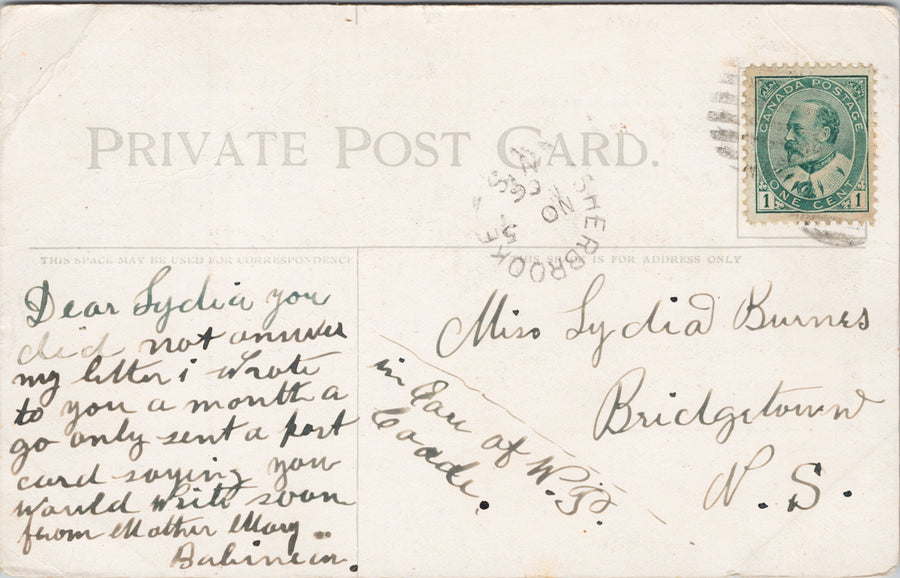 PRIVATE POST CARD.
CANADA POSTAGE
1 ONE CENT 1
SHERBROOKE
NO 5
THIS SPACE MAY BE USED FOR CORRESPONDENCE
THIS SPACE IS FOR ADDRESS ONLY
Dear Lydia you
did not answer
my letter i wrote
to you a month a
go only sent a post
card saying you
would write soon
from Mother Mary
Miss Lydia Burnes
Bridgetown
N. S.
in Care of W.